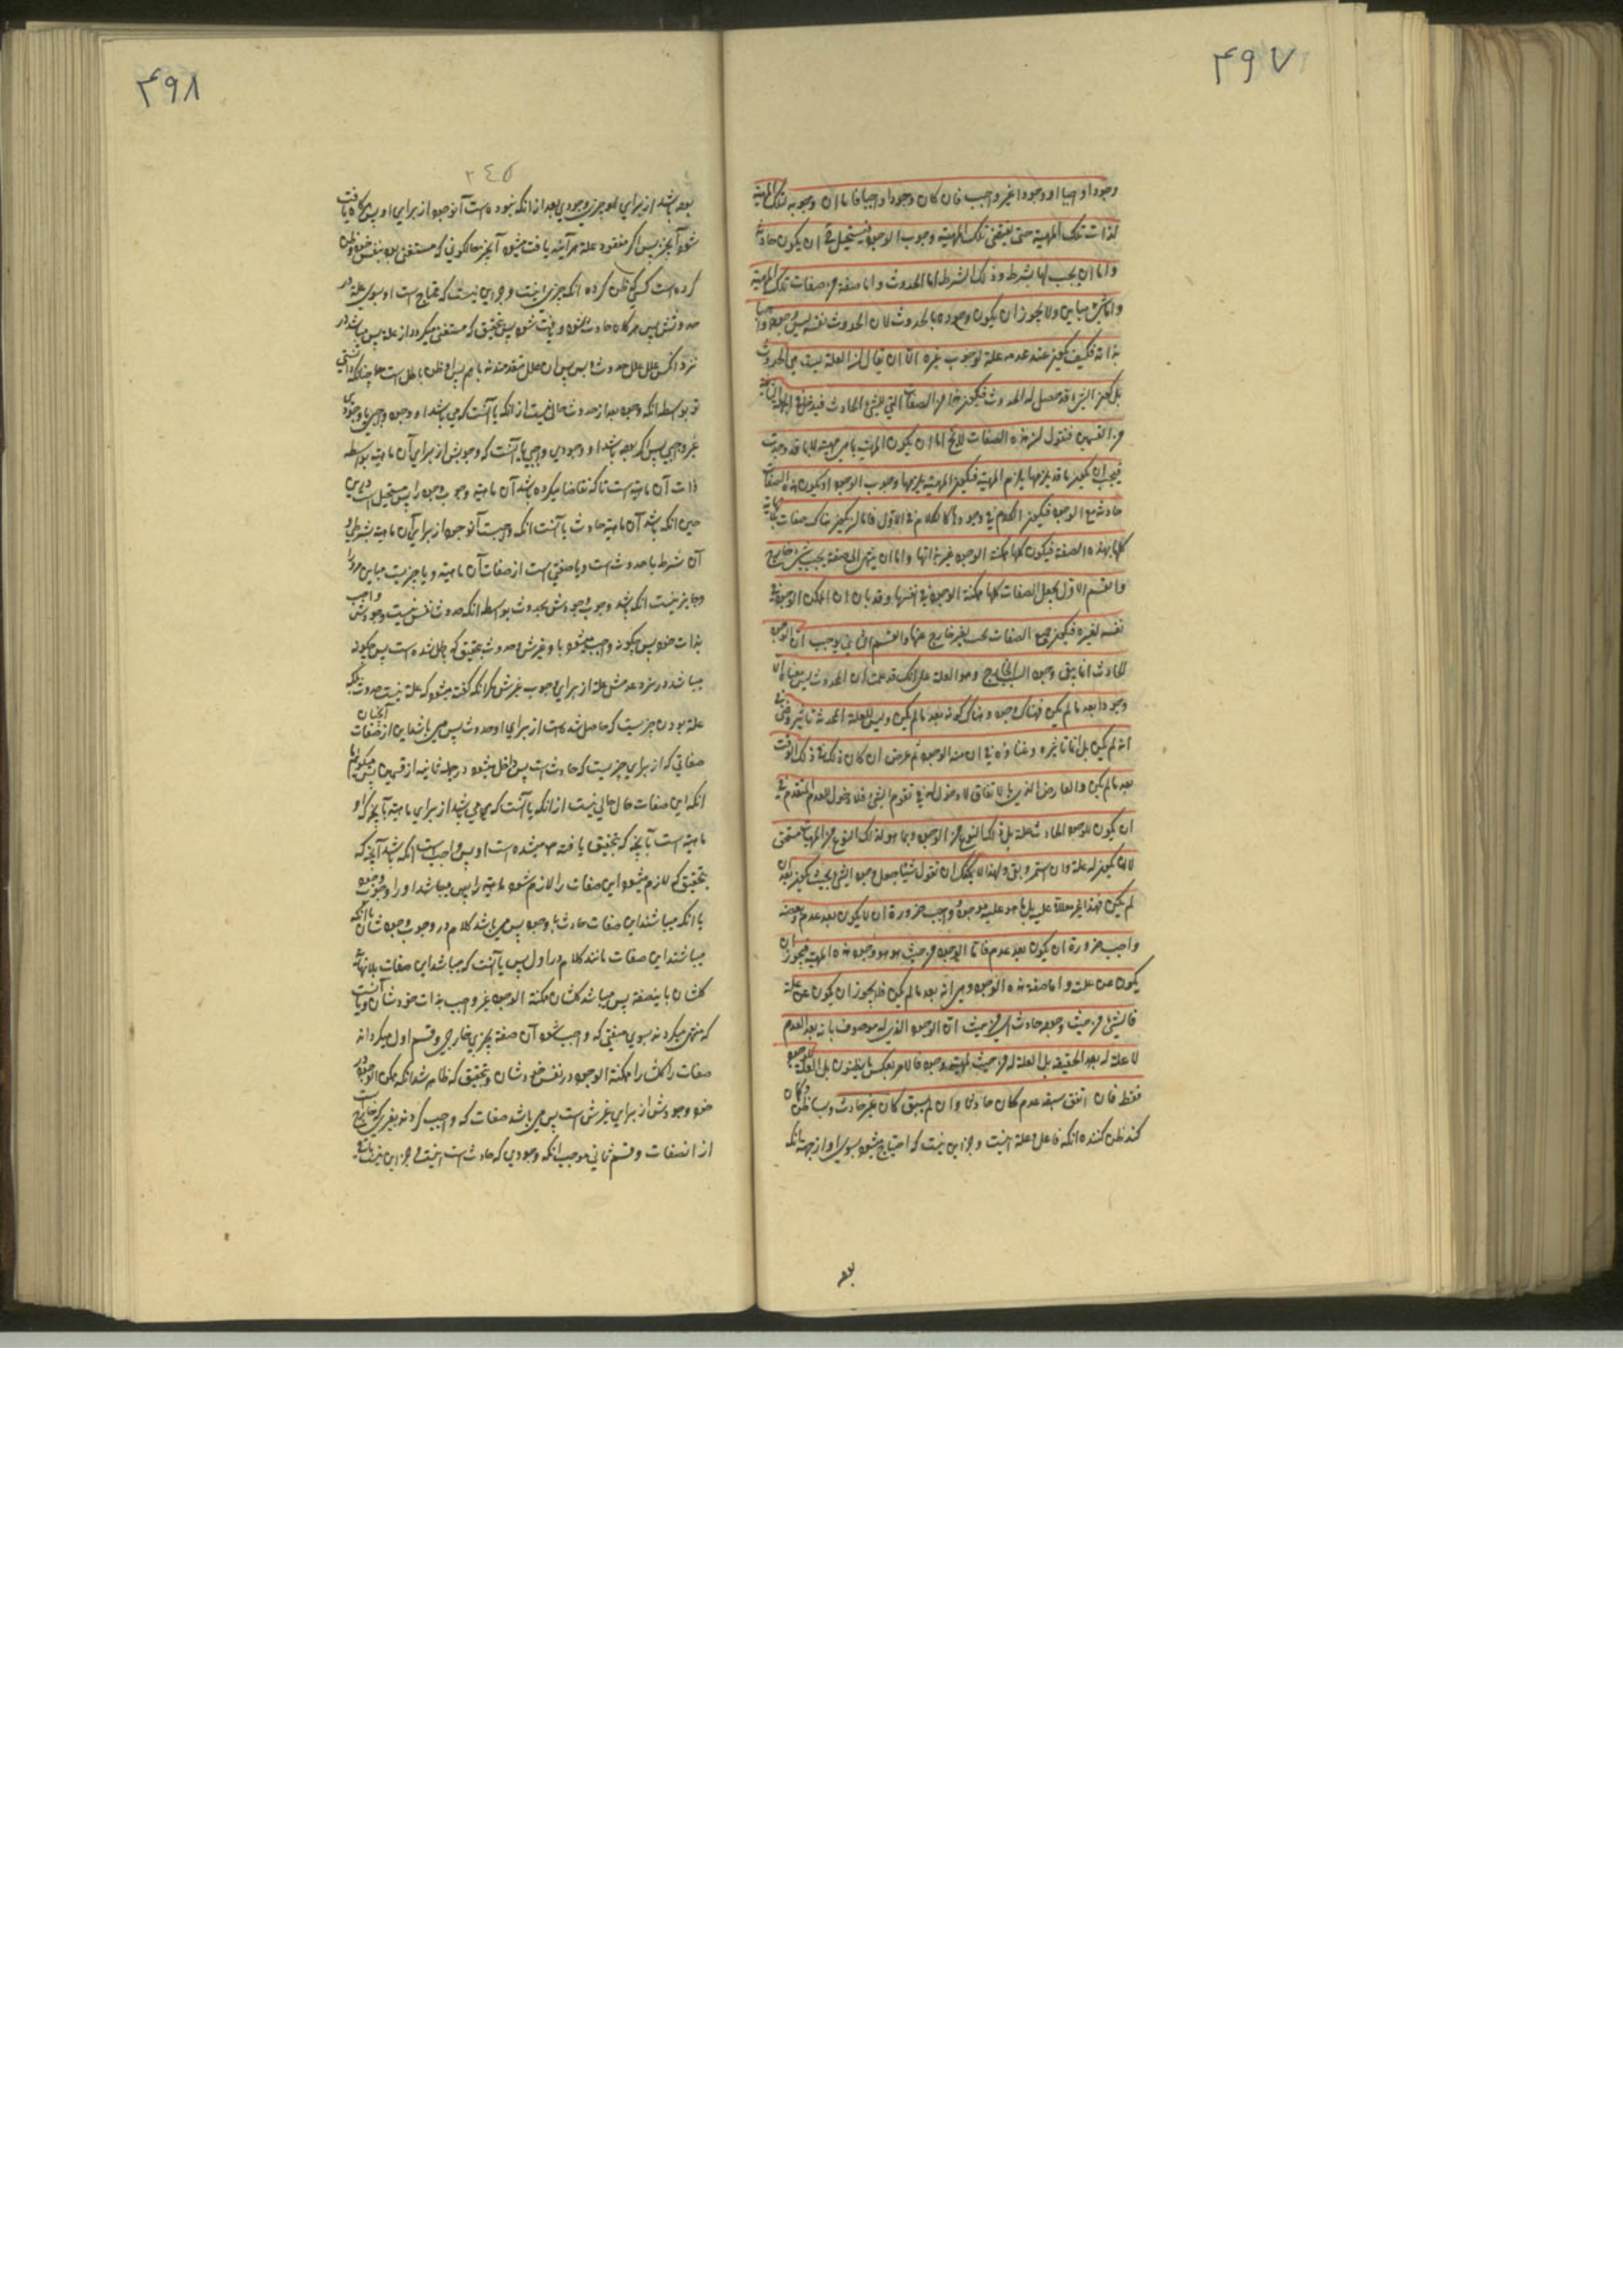 ۴۹۷
وجودا واجبا او وجودا غير واجب فان كان وجودا واجبا فاما ان وجوبه لتلك المهية
لذات تلك المهية حتى يقتضى تلك المهية وجوب الوجود فيستحيل ان يكون حادثة
واما ان يجب لها بشرط وذلك الشرط اما الحدوث واما صفة من صفات تلك المهية
واما شئ مباين ولا يجوز ان يكون وجوده بالحدوث لان الحدوث نفسه ليس وجوده واجبا
بذاته فكيف يكون عند عدمه علة لوجوب غيره الا ان يقال ان العلة ليست هي الحدوث
بل كون الشئ قد حصل له الحدوث فيكون هذا من الصفات التي للشئ الحادث فيدخل في الجملة الثانية
من القسمين فنقول ان هذه الصفات لا يخ اما ان يكون للمهية بما هي مهية لا بما قد وجدت
فيجب ان يكون ما قد يلزمها يلزم المهية فيكون المهية يلزمها وجوب الوجود او يكون هذه الصفات
حادثة مع الوجود فيكون الكلام في وجودها كالكلام في الاول فاما ان يكون هناك صفات بلا نهاية
كلها بهذه الصفة فيكون كلها ممكنة الوجود غير بذاتها واما ان ينتهى الى صفة يجب بشئ خارج
والقسم الاول يجعل الصفات كلها ممكنة الوجود في انفسها وقد بان ان الممكن الوجود في
نفسه لغيره فيكون جميع الصفات يجب بغير خارج عنها والقسم الثاني يوجب ان الوجود
للحادث انما يبقى وجوده السبب الخارج وهو العلة على انك قد علمت ان الحدوث ليس معناه الا
وجودا بعد ما لم يكن فهناك وجود وهناك كونه بعد ما لم يكن وليس للعلة المحدثة تاثير وغنى في
انه لم يكن بل انما تاثيره وغناؤه في ان منه الوجود ثم عرض ان كان ذلك في ذلك الوقت
بعد ما لم يكن والعارض الذي بالاتفاق لا دخول له في تقوم الشئ فلا دخول للعدم المتقدم في
ان يكون للوجود الحادث علة بل ذلك النوع من الوجود وبما هو لذلك النوع من المهيات مستحق
لان يكون له علة وان استمر وبقى ولهذا لا يمكنك ان تقول شيئا جعل وجود الشئ بحيث يكون بعد ان
لم يكن فهذا غير مقدور عليه بل ما هو عليه موجود واجب ضرورة ان لا يكون بعد عدم وبعضه
واجب ضرورة ان يكون بعد عدم فاما الوجود من حيث هو هو وجود هذه المهية فيجوز ان
يكون من علة واما صفة هذه الوجود وهي انه بعد ما لم يكن فلا يجوز ان يكون عن علة
فالشئ من حيث وجوده حادث اى من حيث ان الوجود الذى له موصوف بانه بعد العدم
لا علة له بالحقيقة بل العلة له من حيث للمهية وجود فالامر بعكس ما يظنون بل العلة للوجود
فقط فان اتفق سبقه عدم كان حادثا وان لم يسبق كان غير حادث وبسا ظن وگمان
كند ظن كننده انكه فاعل وعلة اينست وجز اين نيست كه احتياج ميشود بسوى او از جهة انكه
بوده
۴۹۸
۲٤٥
بوده باشد از براى بود چيزى وجودى بعد از انكه نبوده است آن وجود از براى او پس هرگاه يافت
شود آن چيز پس اگر مفقود علة هر آينه يافت ميشود آن چيز حالكونى كه مستغنى بود بنفس خود وظن
كرده است كسى كه ظن كرده انكه چيزى اينست وجز اين نيست كه محتاج است او بسوى علة در
حدوثش پس هرگاه حادث شود ويافت شود پس بتحقيق كه مستغنى ميگردد از علة پس ميباشد در
نزد انكس علل علل حدوث وبس پس ان علل متقدمند نه باهم پس او ظن باطل است چنانكه دانستى
تو بواسطه انكه وجود بعد از حدوث خالى نيست از انكه يا آنست كه مى باشد او وجود واجبى يا وجودى
غير واجبى پس اگر بوده باشد او وجودى واجبى يا آنست كه وجوبش از براى آن ماهيته بواسطه
ذات آن ماهيته است تا كه تقاضا ميكرده باشد آن ماهيته وجوب وجود را پس مستحيل است در اين
حين انكه باشد آن ماهيته حادث يا آنست انكه واجبست آن وجود از براى آن ماهيته بشرطى و
آن شرط يا حدوث است ويا صفتى است از صفات آن ماهيته ويا چيزيست مباين مر او را
وجايز نيست انكه باشد وجوب وجودش بحدوث بواسطه انكه حدوث نفسش نيست وجودش واجب
بذات خود پس چگونه واجب ميشود باو غيرش وحدوث بتحقيق كه باطل شده است پس چگونه
ميباشد در نزد عدمش علة از براى وجوب غيرش مگر انكه گفته ميشود كه علة نيست حدوث بلكه
علة بودن چيزيست كه حاصل شده است از براى او حدوث پس مى باشد اين از صفات آنچنان
صفاتى كه از براى چيزيست كه حادث است پس داخل ميشود در جمله ثانيه از قسمين پس ميگوئيم ما
انكه اين صفات حال خالى نيست از انكه يا آنست كه مى باشد از براى ماهيته بآنچيز كه او
ماهيته است نه بآنچيز كه بتحقيق يافته ميشده است او پس واجب است انكه باشد آنچيز كه
بتحقيق كه لازم ميشود اين صفات را لازم شود ماهيته را پس ميباشد او را وجوب وجود
يا انكه ميباشند اين صفات حادث با وجود پس مى باشد كلام در وجوب وجود شان يا انكه
ميباشند اين صفات مانند كلام در اول پس يا آنست كه ميباشد اين صفات بلا نهاية
كلشان باينصفة پس ميباشد كلشان ممكنة الوجود غير واجب بذات خودشان ويا آنست
كه منتهى ميگردند بسوى صفتى كه واجب شود آن صفة بچيزى خارجى وقسم اول ميگرداند
صفات را كلش را ممكنة الوجود در نفس خودشان وبتحقيق كه ظاهر شد انكه ممكن الوجود در
خود وجودش از براى غيرش است پس مى باشد صفات كه واجب گردند بغيرى كه خارج است
از انصفات وقسم ثانى موجب انكه وجودى كه حادث است اينست وجز اين نيست باقى